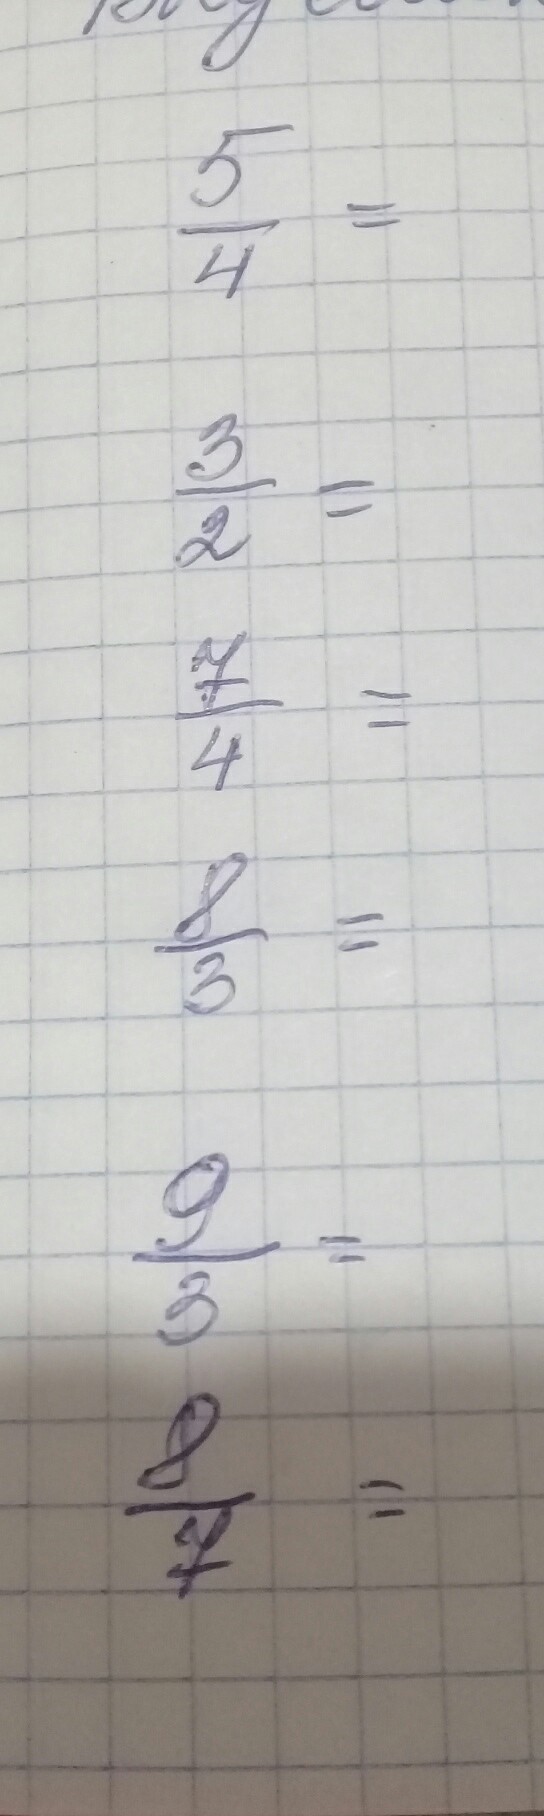 5/4 =
3/2 =
7/4 =
8/3 =
9/3 =
8/7 =